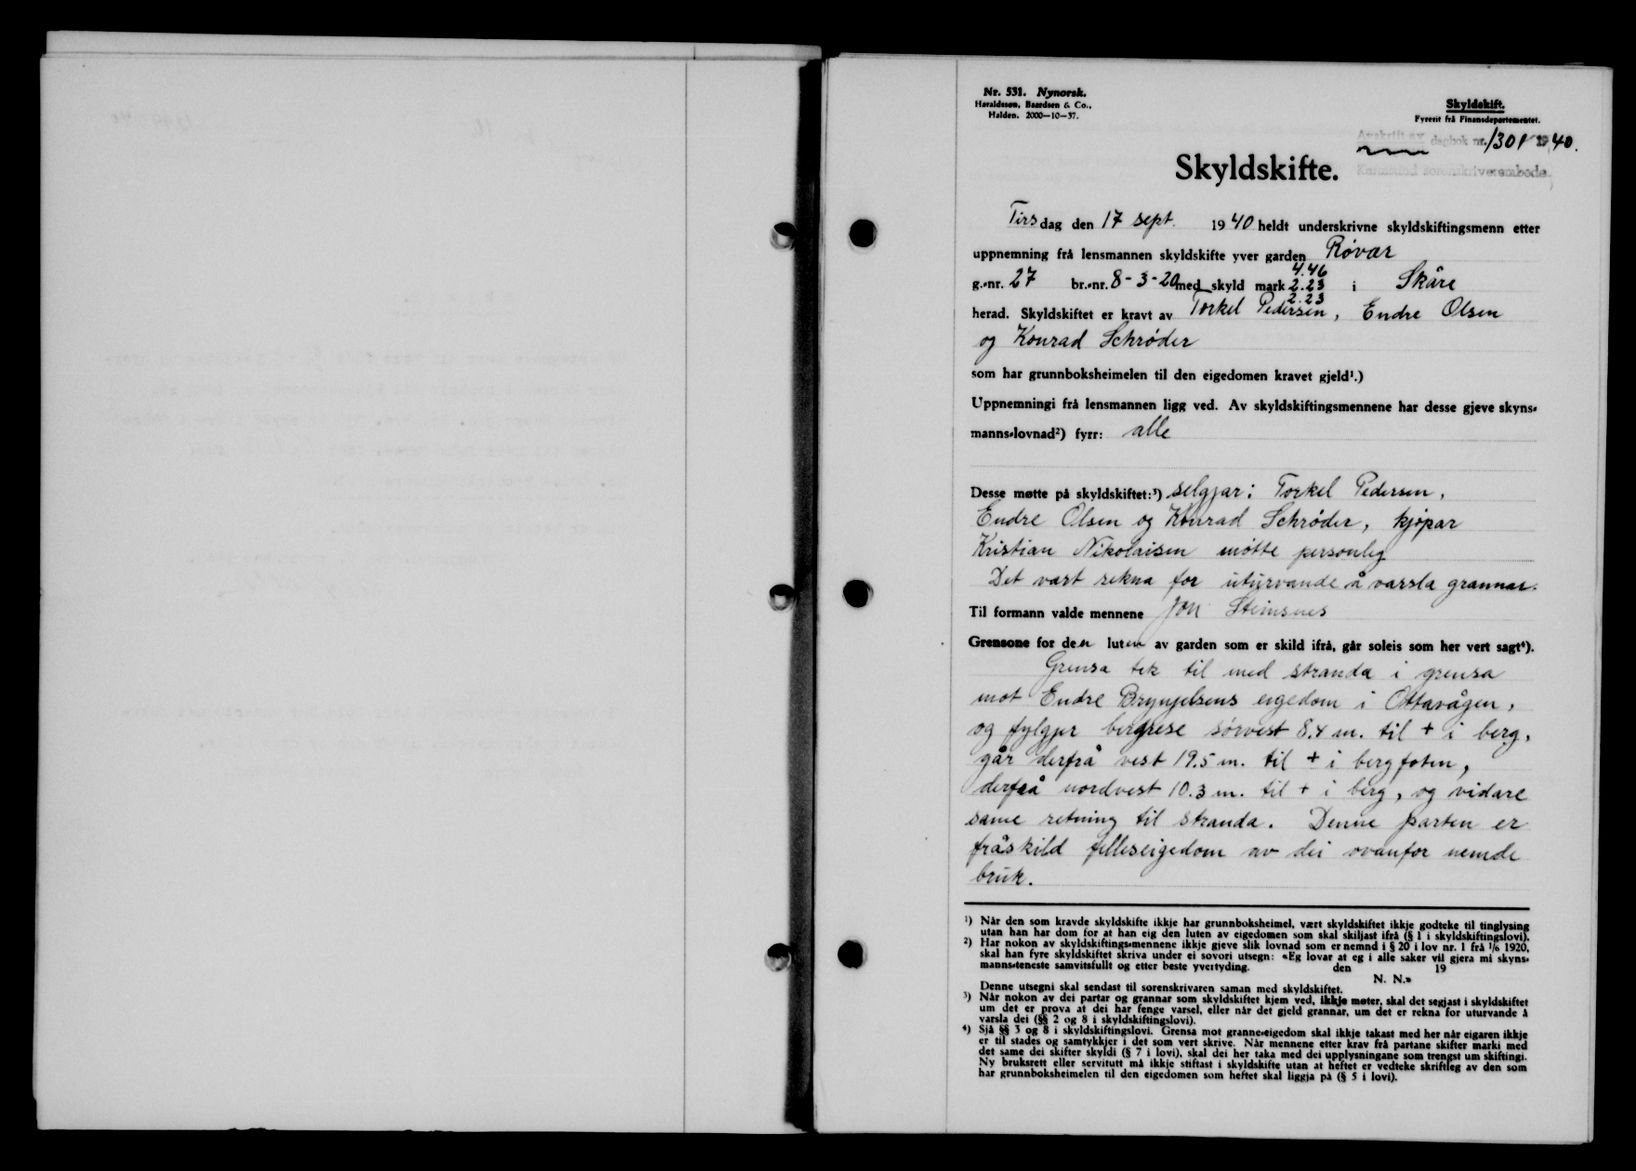 Nr. 531. Nynorsk.
Haraldssøn, Baardsen & Co.,
Halden. 2000—10—37.
Skyldskift.
Fyresit frå Finansdepartementet.
Avskrift av dagbok nr. 1301 1940.
Karmsund sorenskriverembede.
Skyldskifte.
Tirsdag den 17 sept. 1940 heldt underskrivne skyldskiftingsmenn etter
uppnemning frå lensmannen skyldskifte yver garden Røvær
4.46
g.-nr. 27 br.-nr. 8-3-20 med skyld mark 2.23 i Skåre
2.23
herad. Skyldskiftet er kravt av Torkel Pedersen, Endre Olsen
og Konrad Schrøder
som har grunnboksheimelen til den eigedomen kravet gjeld¹.)
Uppnemningi frå lensmannen ligg ved. Av skyldskiftingsmennene har desse gjeve skyns-
manns-lovnad²) fyrr: alle
Desse møtte på skyldskiftet:³) selgjar: Torkel Pedersen,
Endre Olsen og Konrad Schrøder, kjøpar
Kristian Nikolaisen møtte personleg
Det vart rekna for uturvande å varsla grannar.
Til formann valde mennene Jon Steinsnes
Grensone for den luten av garden som er skild ifrå, går soleis som her vert sagt⁴).
Grensa tek til med stranda i grensa
mot Endre Brynjelsens eigedom i Ottavågen,
og fylgjer bergrese sørvest 8.4 m. til + i berg,
går derfrå vest 19.5 m. til + i bergfoten,
derfrå nordvest 10.3 m. til + i berg, og vidare
same retning til stranda. Denne parten er
fråskild felleseigedom av dei ovanfor nemde
bruk.
¹) Når den som kravde skyldskifte ikkje har grunnboksheimel, vært skyldskiftet ikkje godteke til tinglysing
utan han har dom for at han eig den luten av eigedomen som skal skiljast ifrå (§ 1 i skyldskiftingslovi).
²) Har nokon av skyldskiftings-mennene ikkje gjeve slik lovnad som er nemnd i § 20 i lov nr. 1 frå 1/6 1920,
skal han fyre skyldskiftet skriva under ei sovori utsegn: «Eg lovar at eg i alle saker vil gjera mi skyns-
manns-teneste samvitsfullt og etter beste yvertyding. den 19
N. N.»
Denne utsegni skal sendast til sorenskrivaren saman med skyldskiftet.
³) Når nokon av dei partar og grannar som skyldskiftet kjem ved, ikkje møter, skal det segjast i skyldskiftet
um det er prova at dei har fenge varsel, eller når det gjeld grannar, um det er rekna for uturvande å
varsla dei (§§ 2 og 8 i skyldskiftingslovi).
⁴) Sjå §§ 3 og 8 i skyldskiftingslovi. Grensa mot granne-eigedom skal ikkje takast med her når eigaren ikkje
er til stades og samtykkjer i det som vert skrive. Når mennene etter krav frå partane skifter marki med
det same dei skifter skyldi (§ 7 i lovi), skal dei her taka med dei upplysningane som trengst um skiftingi.
Ny bruksrett eller servitutt må ikkje stiftast i skyldskifte utan at heftet er vedteke skriftleg av den som
har grunnboksheimelen til den eigedomen som heftet skal liggja på (§ 5 i lovi).